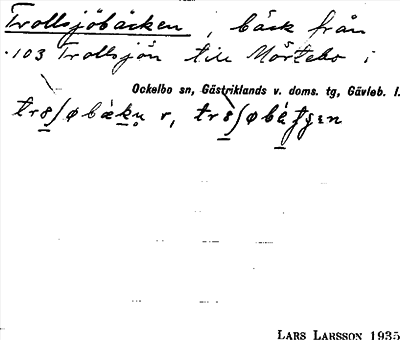 Trollsjöbäcken, bäck från
.103 Trollsjön till Mörtebo i
Ockelbo sn, Gästriklands v. doms. tg, Gävleb. l.
r,
LARS LARSSON 1935